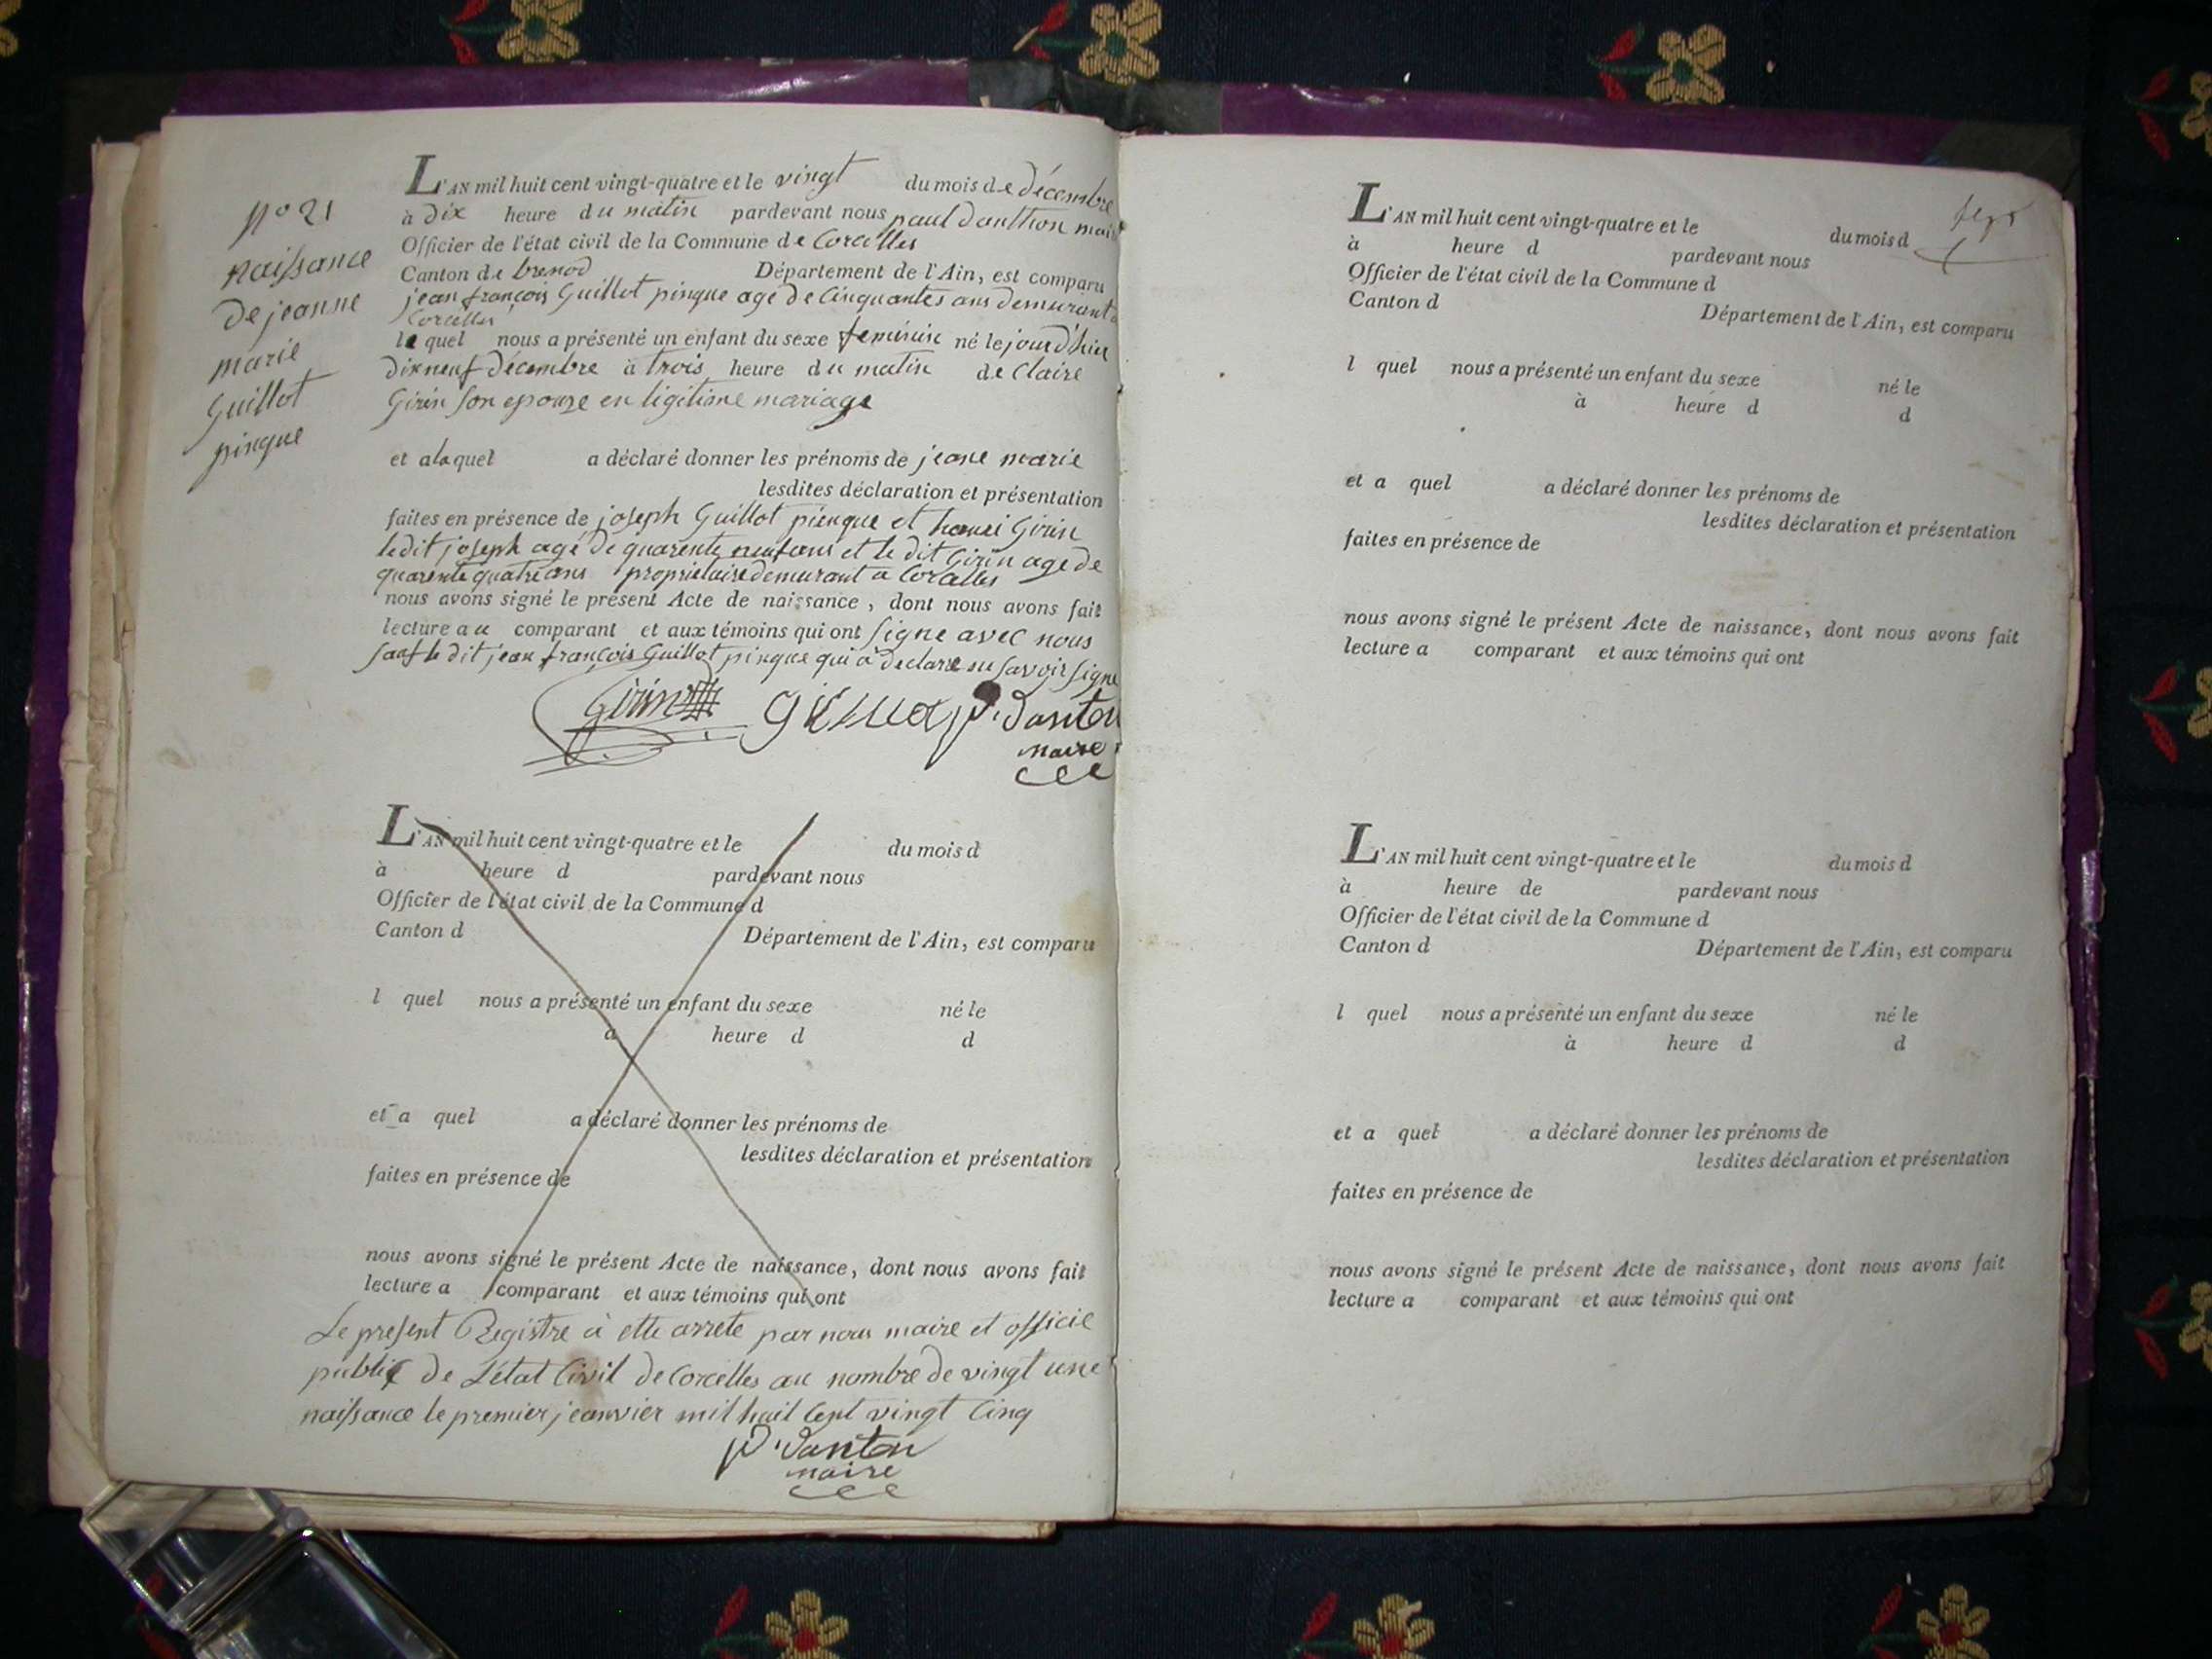 N° 21
naissance
de jeanne
marie
Guillot
pinque
L'AN mil huit cent vingt-quatre et le vingt du mois de décembre
à dix heure du matin pardevant nous paul danthon maire
Officier de l'état civil de la Commune de Corcelles
Canton de brenod Département de l'Ain, est comparu
jean françois Guillot pinque agé de Cinquantes ans demeurant a
Corcelles
lequel nous a présenté un enfant du sexe feminin né le jour d'hier
dixneuf décembre à trois heure du matin de Claire
Girin son epouze en ligitime mariage
et alaquel a déclaré donner les prénoms de jeane marie
lesdites déclaration et présentation
faites en présence de joseph Guillot pienque et henri Girin
le dit joseph agé de quarente neuf ans et le dit Girin age de
quarente quatre ans propriétaire demurant a Corcelles
nous avons signé le présent Acte de naissance, dont nous avons fait
lecture au comparant et aux témoins qui ont signe avec nous
sauf le dit jean françois Guillot pinque qui a declare ne savoir signe
Girin P. Danton
maire
L'AN mil huit cent vingt-quatre et le du mois d
à heure d pardevant nous
Officier de l'état civil de la Commune d
Canton d Département de l'Ain, est comparu
l quel nous a présenté un enfant du sexe né le
à heure d d
et a quel a déclaré donner les prénoms de
lesdites déclaration et présentation
faites en présence de
nous avons signé le présent Acte de naissance, dont nous avons fait
lecture a comparant et aux témoins qui ont
Le present Registre à ette arrete par nous maire et officie
public de L'état Civil de Corcelles au nombre de vingt une
naissance le premier jeanvier mil huit Cent vingt Cinq
P. Danton
maire
L'AN mil huit cent vingt-quatre et le du mois d
à heure d pardevant nous
Officier de l'état civil de la Commune d
Canton d Département de l'Ain, est comparu
l quel nous a présenté un enfant du sexe né le
à heure d d
et a quel a déclaré donner les prénoms de
lesdites déclaration et présentation
faites en présence de
nous avons signé le présent Acte de naissance, dont nous avons fait
lecture a comparant et aux témoins qui ont
L'AN mil huit cent vingt-quatre et le du mois d
à heure de pardevant nous
Officier de l'état civil de la Commune d
Canton d Département de l'Ain, est comparu
l quel nous a présenté un enfant du sexe né le
à heure d d
et a quel a déclaré donner les prénoms de
lesdites déclaration et présentation
faites en présence de
nous avons signé le présent Acte de naissance, dont nous avons fait
lecture a comparant et aux témoins qui ont